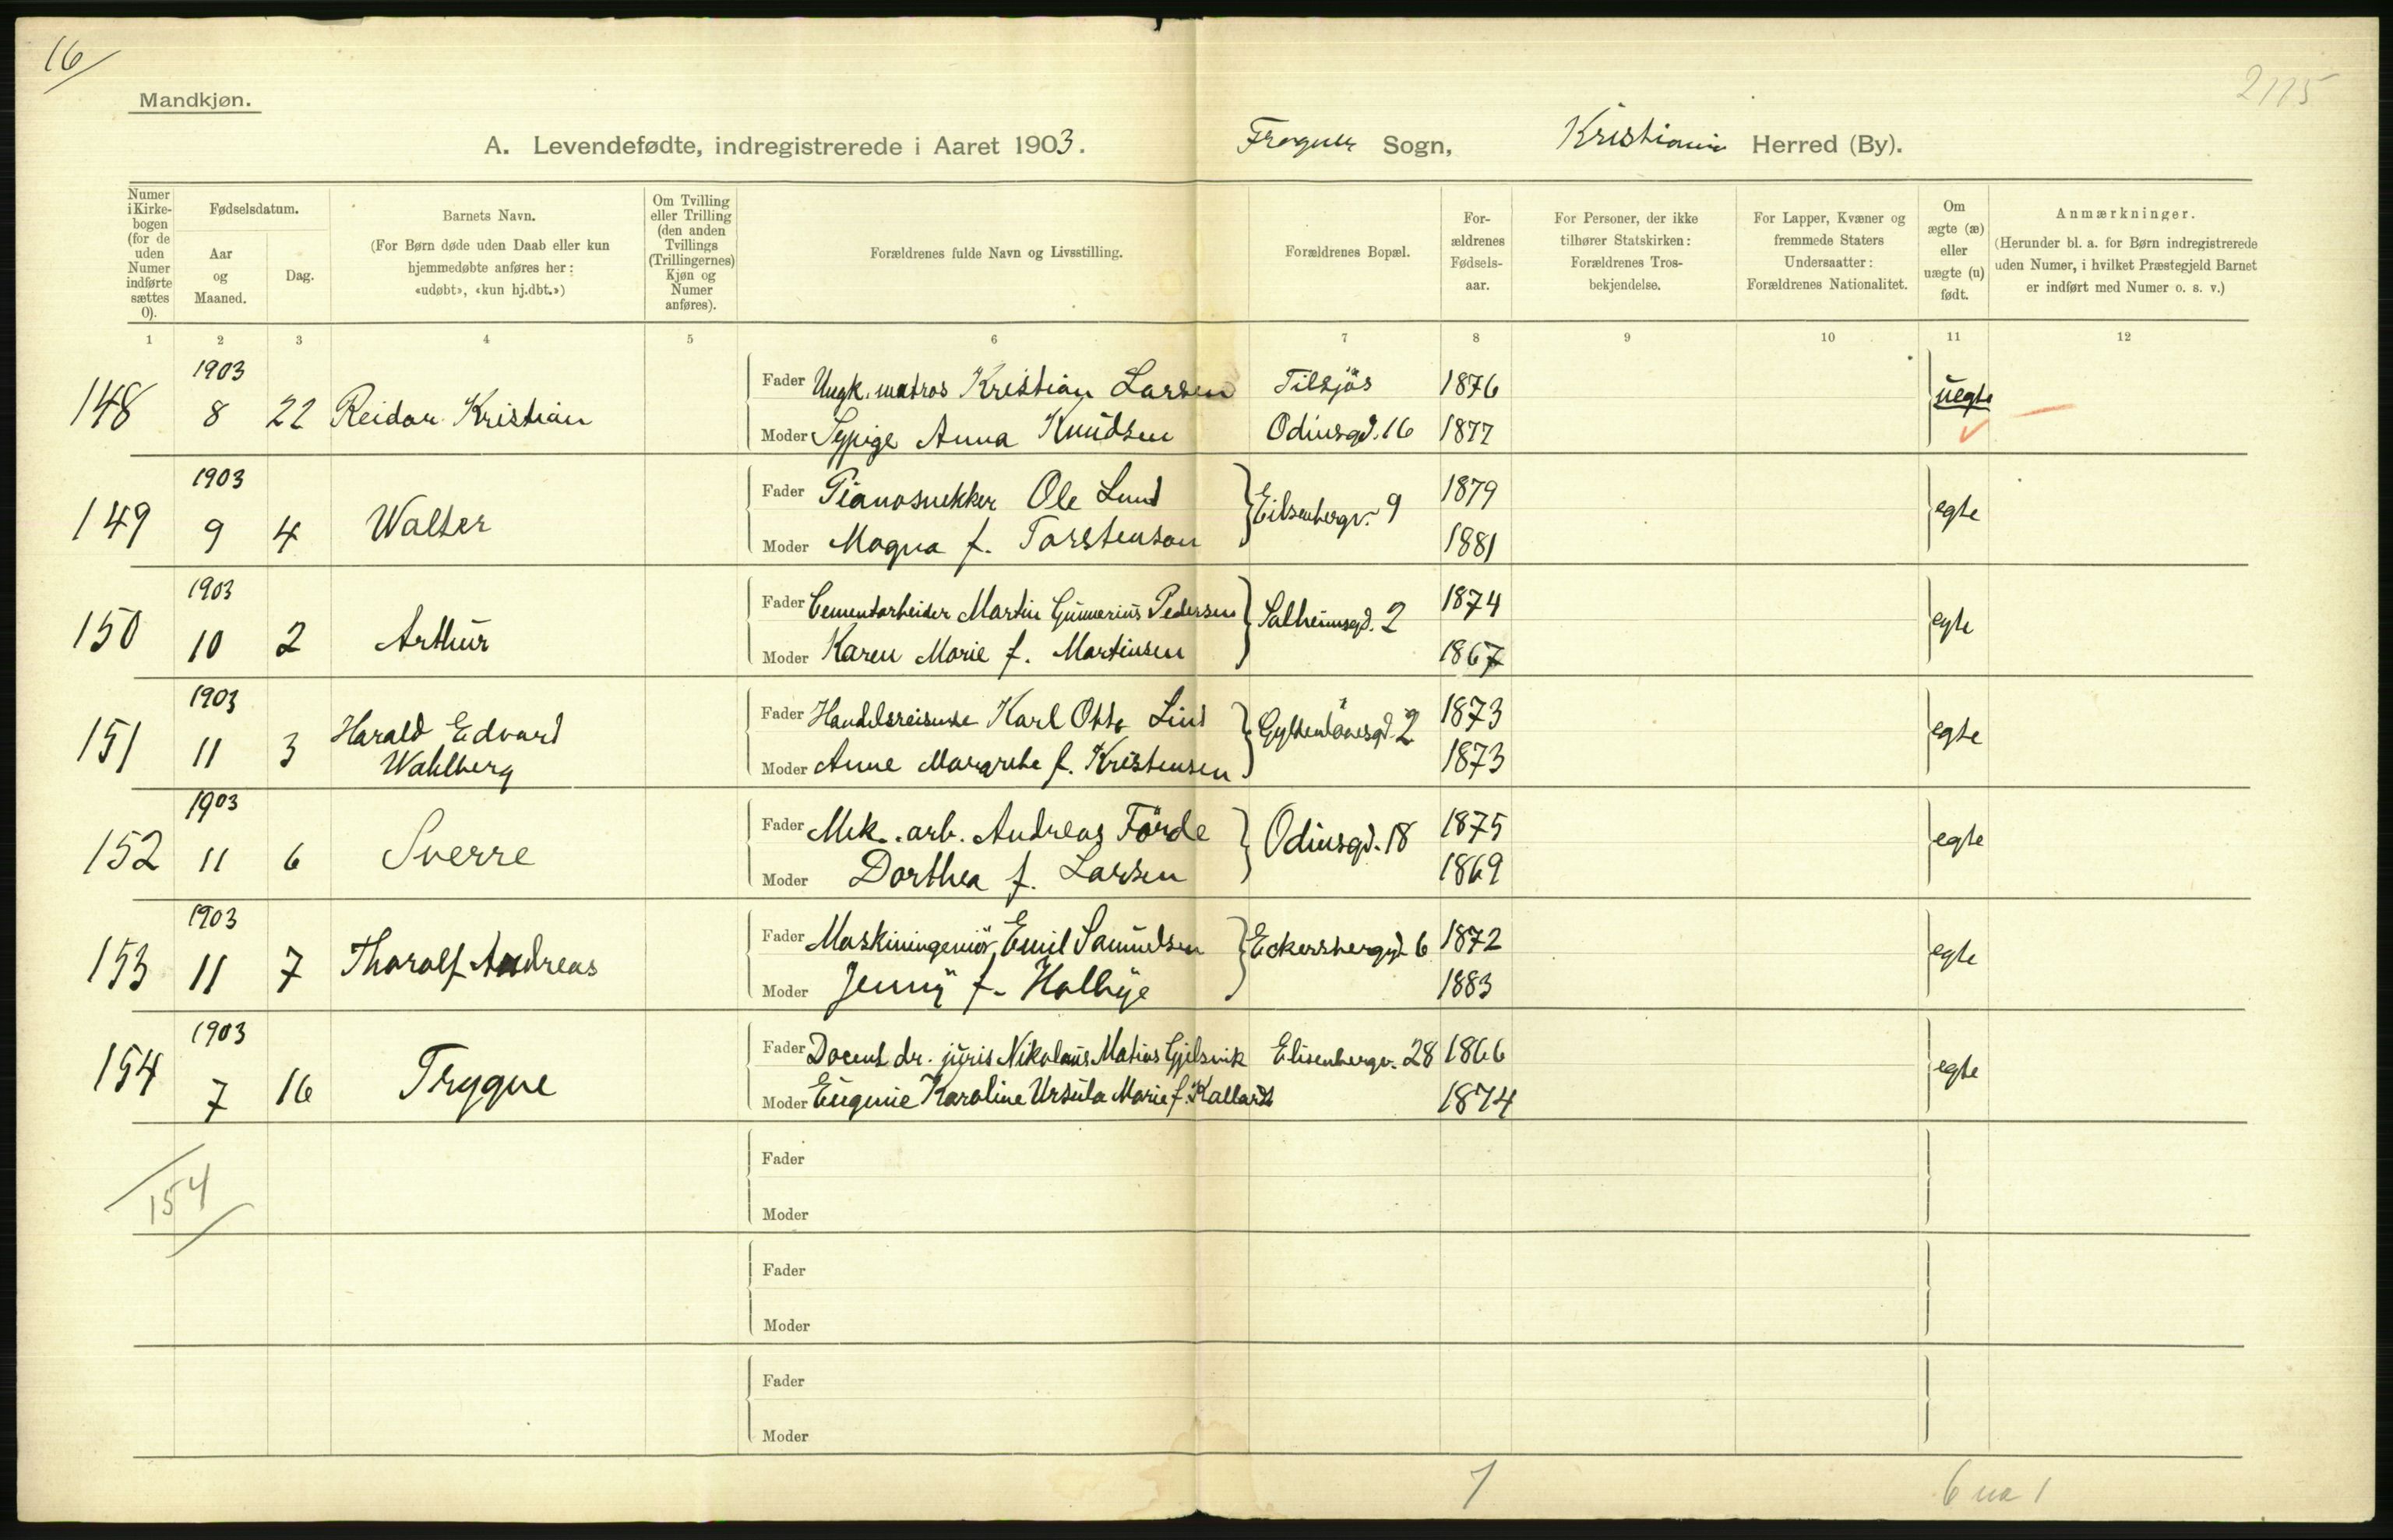 16
2115
Mandkjøn.
A. Levendefødte, indregistrerede i Aaret 1903.
Frogner Sogn, Kristiania Herred (By).
Numer i Kirke-bogen (for de uden Numer indførte sættes 0).
Fødselsdatum.
Aar og Maaned.
Dag.
Barnets Navn.
(For Børn døde uden Daab eller kun hjemmedøbte anføres her: «udøbt», «kun hj.dbt.»)
Om Tvilling eller Trilling (den anden Tvillings (Trillingernes) Kjøn og Numer anføres).
Forældrenes fulde Navn og Livsstilling.
Forældrenes Bopæl.
For-ældrenes Fødsels-aar.
For Personer, der ikke tilhører Statskirken: Forældrenes Tros-bekjendelse.
For Lapper, Kvæner og fremmede Staters Undersaatter: Forældrenes Nationalitet.
Om ægte (æ) eller uægte (u) født.
Anmærkninger.
(Herunder bl. a. for Børn indregistrerede uden Numer, i hvilket Præstegjeld Barnet er indført med Numer o. s. v.)
1 2 3 4 5 6 7 8 9 10 11 12
148 1903 8 22 Reidar Kristian
Fader Ungk. matros Kristian Larsen Tilsjös 1876 uegte
Moder Sypige Anna Knudsen Odinsgd. 16 1877
149 1903 9 4 Walter
Fader Pianosnekker Ole Lund Eilsenbergv. 9 1879 egte
Moder Magna f. Torstenson 1881
150 1903 10 2 Arthur
Fader Cementarbeider Martin Gunnerius Pedersen Solheimsgd. 2 1874 egte
Moder Karen Marie f. Martinsen 1867
151 1903 11 3 Harald Edvard Wahlberg
Fader Handelsreisende Karl Otto Lind Gyldenlövesgd. 2 1873 egte
Moder Anne Margrethe f. Kristensen 1873
152 1903 11 6 Sverre
Fader Mek. arb. Andreas Förde Odinsgd. 18 1875 egte
Moder Dorthea f. Larsen 1869
153 1903 11 7 Tharalf Andreas
Fader Maskiningeniör Emil Samuelsen Eckersbergsgd 6 1872 egte
Moder Jenny f. Holbye 1883
154 1903 7 16 Trygve
Fader Docent dr. juris Nikolaus Matias Gjelsvik Elisenbergv. 28 1866 egte
Moder Eugenie Karoline Ursula Marie f. Kallardt 1874
154
Fader
Moder
Fader
Moder
Fader
Moder
7